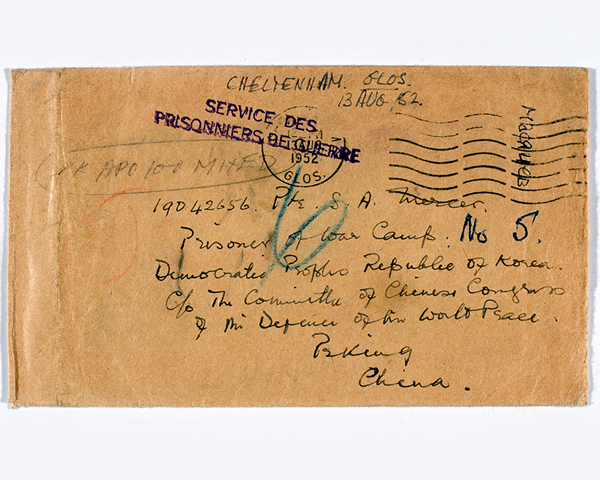 CHELTENHAM. GLOS.
13 AUG 52.
SERVICE DES
PRISONNIERS DE GUERRE
1952
GLOS.
APO 100 MIXED
6
19042656 Pte. S. A. Mercer.
Prisoner of War Camp. No 5.
Democratic Peoples Republic of Korea.
C/o The Committee of Chinese Congress
of the Defence of the World Peace.
Peking
China.